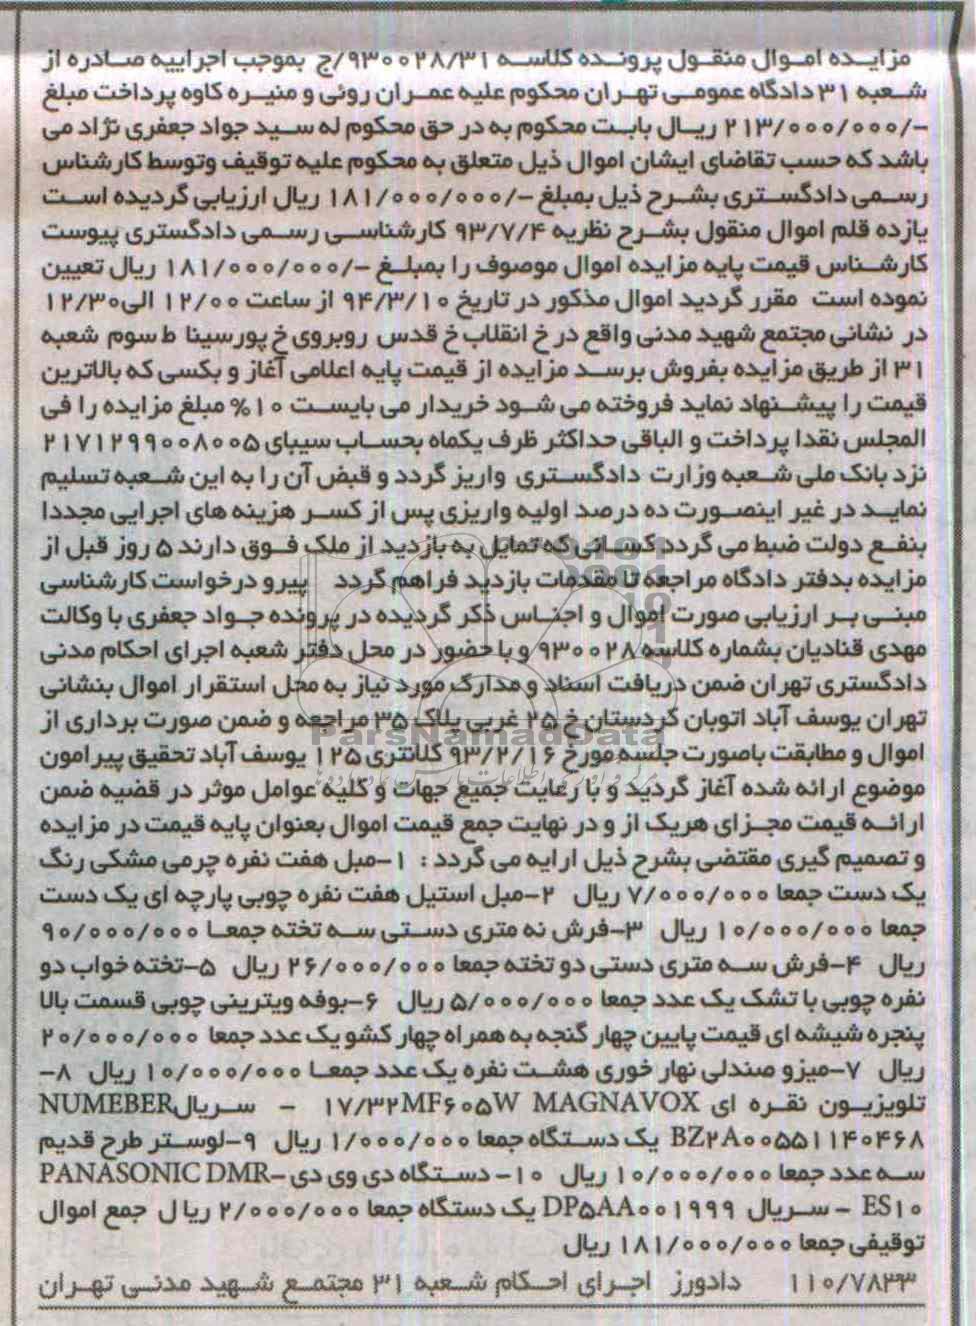 مزایده اموال منقول پرونده کلاسه ۹۳۰۰۲۸/۳۱/ج بموجب اجراییه صادره از
شعبه ۳۱ دادگاه عمومی تهران محکوم علیه عمران روئی و منیره کاوه پرداخت مبلغ
-/۲۱۳/۰۰۰/۰۰۰ ریال بابت محکوم به در حق محکوم له سید جواد جعفری نژاد می
باشد که حسب تقاضای ایشان اموال ذیل متعلق به محکوم علیه توقیف وتوسط کارشناس
رسمی دادگستری بشرح ذیل بمبلغ -/۱۸۱/۰۰۰/۰۰۰ ریال ارزیابی گردیده است
یازده قلم اموال منقول بشرح نظریه ۹۳/۷/۴ کارشناسی رسمی دادگستری پیوست
کارشناس قیمت پایه مزایده اموال موصوف را بمبلغ -/۱۸۱/۰۰۰/۰۰۰ ریال تعیین
نموده است مقرر گردید اموال مذکور در تاریخ ۹۴/۳/۱۰ از ساعت ۱۲/۰۰ الی۱۲/۳۰
در نشانی مجتمع شهید مدنی واقع در خ انقلاب خ قدس روبروی خ پورسینا ط سوم شعبه
۳۱ از طریق مزایده بفروش برسد مزایده از قیمت پایه اعلامی آغاز و بکسی که بالاترین
قیمت را پیشنهاد نماید فروخته می شود خریدار می بایست ۱۰% مبلغ مزایده را فی
المجلس نقدا پرداخت و الباقی حداکثر ظرف یکماه بحساب سیبای ۲۱۷۱۲۹۹۰۰۸۰۰۵
نزد بانک ملی شعبه وزارت دادگستری واریز گردد و قبض آن را به این شعبه تسلیم
نماید در غیر اینصورت ده درصد اولیه واریزی پس از کسر هزینه های اجرایی مجددا
بنفع دولت ضبط می گردد کسانی که تمایل به بازدید از ملک فوق دارند ۵ روز قبل از
مزایده بدفتر دادگاه مراجعه تا مقدمات بازدید فراهم گردد پیرو درخواست کارشناسی
مبنی بر ارزیابی صورت اموال و اجناس ذکر گردیده در پرونده جواد جعفری با وکالت
مهدی قنادیان بشماره کلاسه ۹۳۰۰۲۸ و با حضور در محل دفتر شعبه اجرای احکام مدنی
دادگستری تهران ضمن دریافت اسناد و مدارک مورد نیاز به محل استقرار اموال بنشانی
تهران یوسف آباد اتوبان کردستان خ ۲۵ غربی پلاک ۳۵ مراجعه و ضمن صورت برداری از
اموال و مطابقت باصورت جلسه مورخ ۹۳/۲/۱۶ کلانتری ۱۲۵ یوسف آباد تحقیق پیرامون
موضوع ارائه شده آغاز گردید و با رعایت جمیع جهات و کلیه عوامل موثر در قضیه ضمن
ارائه قیمت مجزای هریک از و در نهایت جمع قیمت اموال بعنوان پایه قیمت در مزایده
و تصمیم گیری مقتضی بشرح ذیل ارایه می گردد : ۱-مبل هفت نفره چرمی مشکی رنگ
یک دست جمعا ۷/۰۰۰/۰۰۰ ریال ۲-مبل استیل هفت نفره چوبی پارچه ای یک دست
جمعا ۱۰/۰۰۰/۰۰۰ ریال ۳-فرش نه متری دستی سه تخته جمعا ۹۰/۰۰۰/۰۰۰
ریال ۴-فرش سه متری دستی دو تخته جمعا ۲۶/۰۰۰/۰۰۰ ریال ۵-تخته خواب دو
نفره چوبی با تشک یک عدد جمعا ۵/۰۰۰/۰۰۰ ریال ۶-بوفه ویترینی چوبی قسمت بالا
پنجره شیشه ای قیمت پایین چهار گنجه به همراه چهار کشو یک عدد جمعا ۲۰/۰۰۰/۰۰۰
ریال ۷-میزو صندلی نهار خوری هشت نفره یک عدد جمعا ۱۰/۰۰۰/۰۰۰ ریال ۸-
تلویزیون نقره ای ۱۷/۳۲MF۶۰۵W MAGNAVOX - سریالNUMEBER
BZ۲A۰۰۵۵۱۱۴۰۴۶۸ یک دستگاه جمعا ۱/۰۰۰/۰۰۰ ریال ۹-لوستر طرح قدیم
سه عدد جمعا ۱۰/۰۰۰/۰۰۰ ریال ۱۰- دستگاه دی وی دی PANASONIC DMR-
ES۱۰ - سریال DP۵AA۰۰۱۹۹۹ یک دستگاه جمعا ۲/۰۰۰/۰۰۰ ریا ل جمع اموال
توقیفی جمعا ۱۸۱/۰۰۰/۰۰۰ ریال
۱۱۰/۷۸۲۳ دادورز اجرای احکام شعبه ۳۱ مجتمع شهید مدنی تهران
ParsNamadData